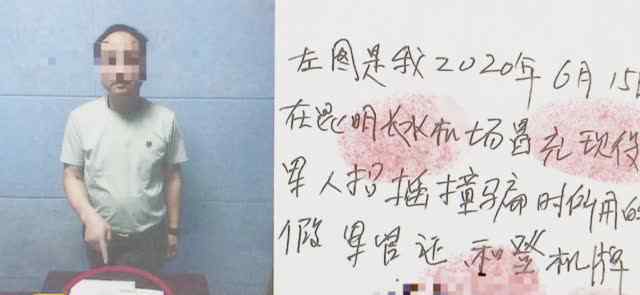 左图是我2020年6月15日
在昆明长水机场冒充现役
军人招摇撞骗时所用的
假军官证和登机牌